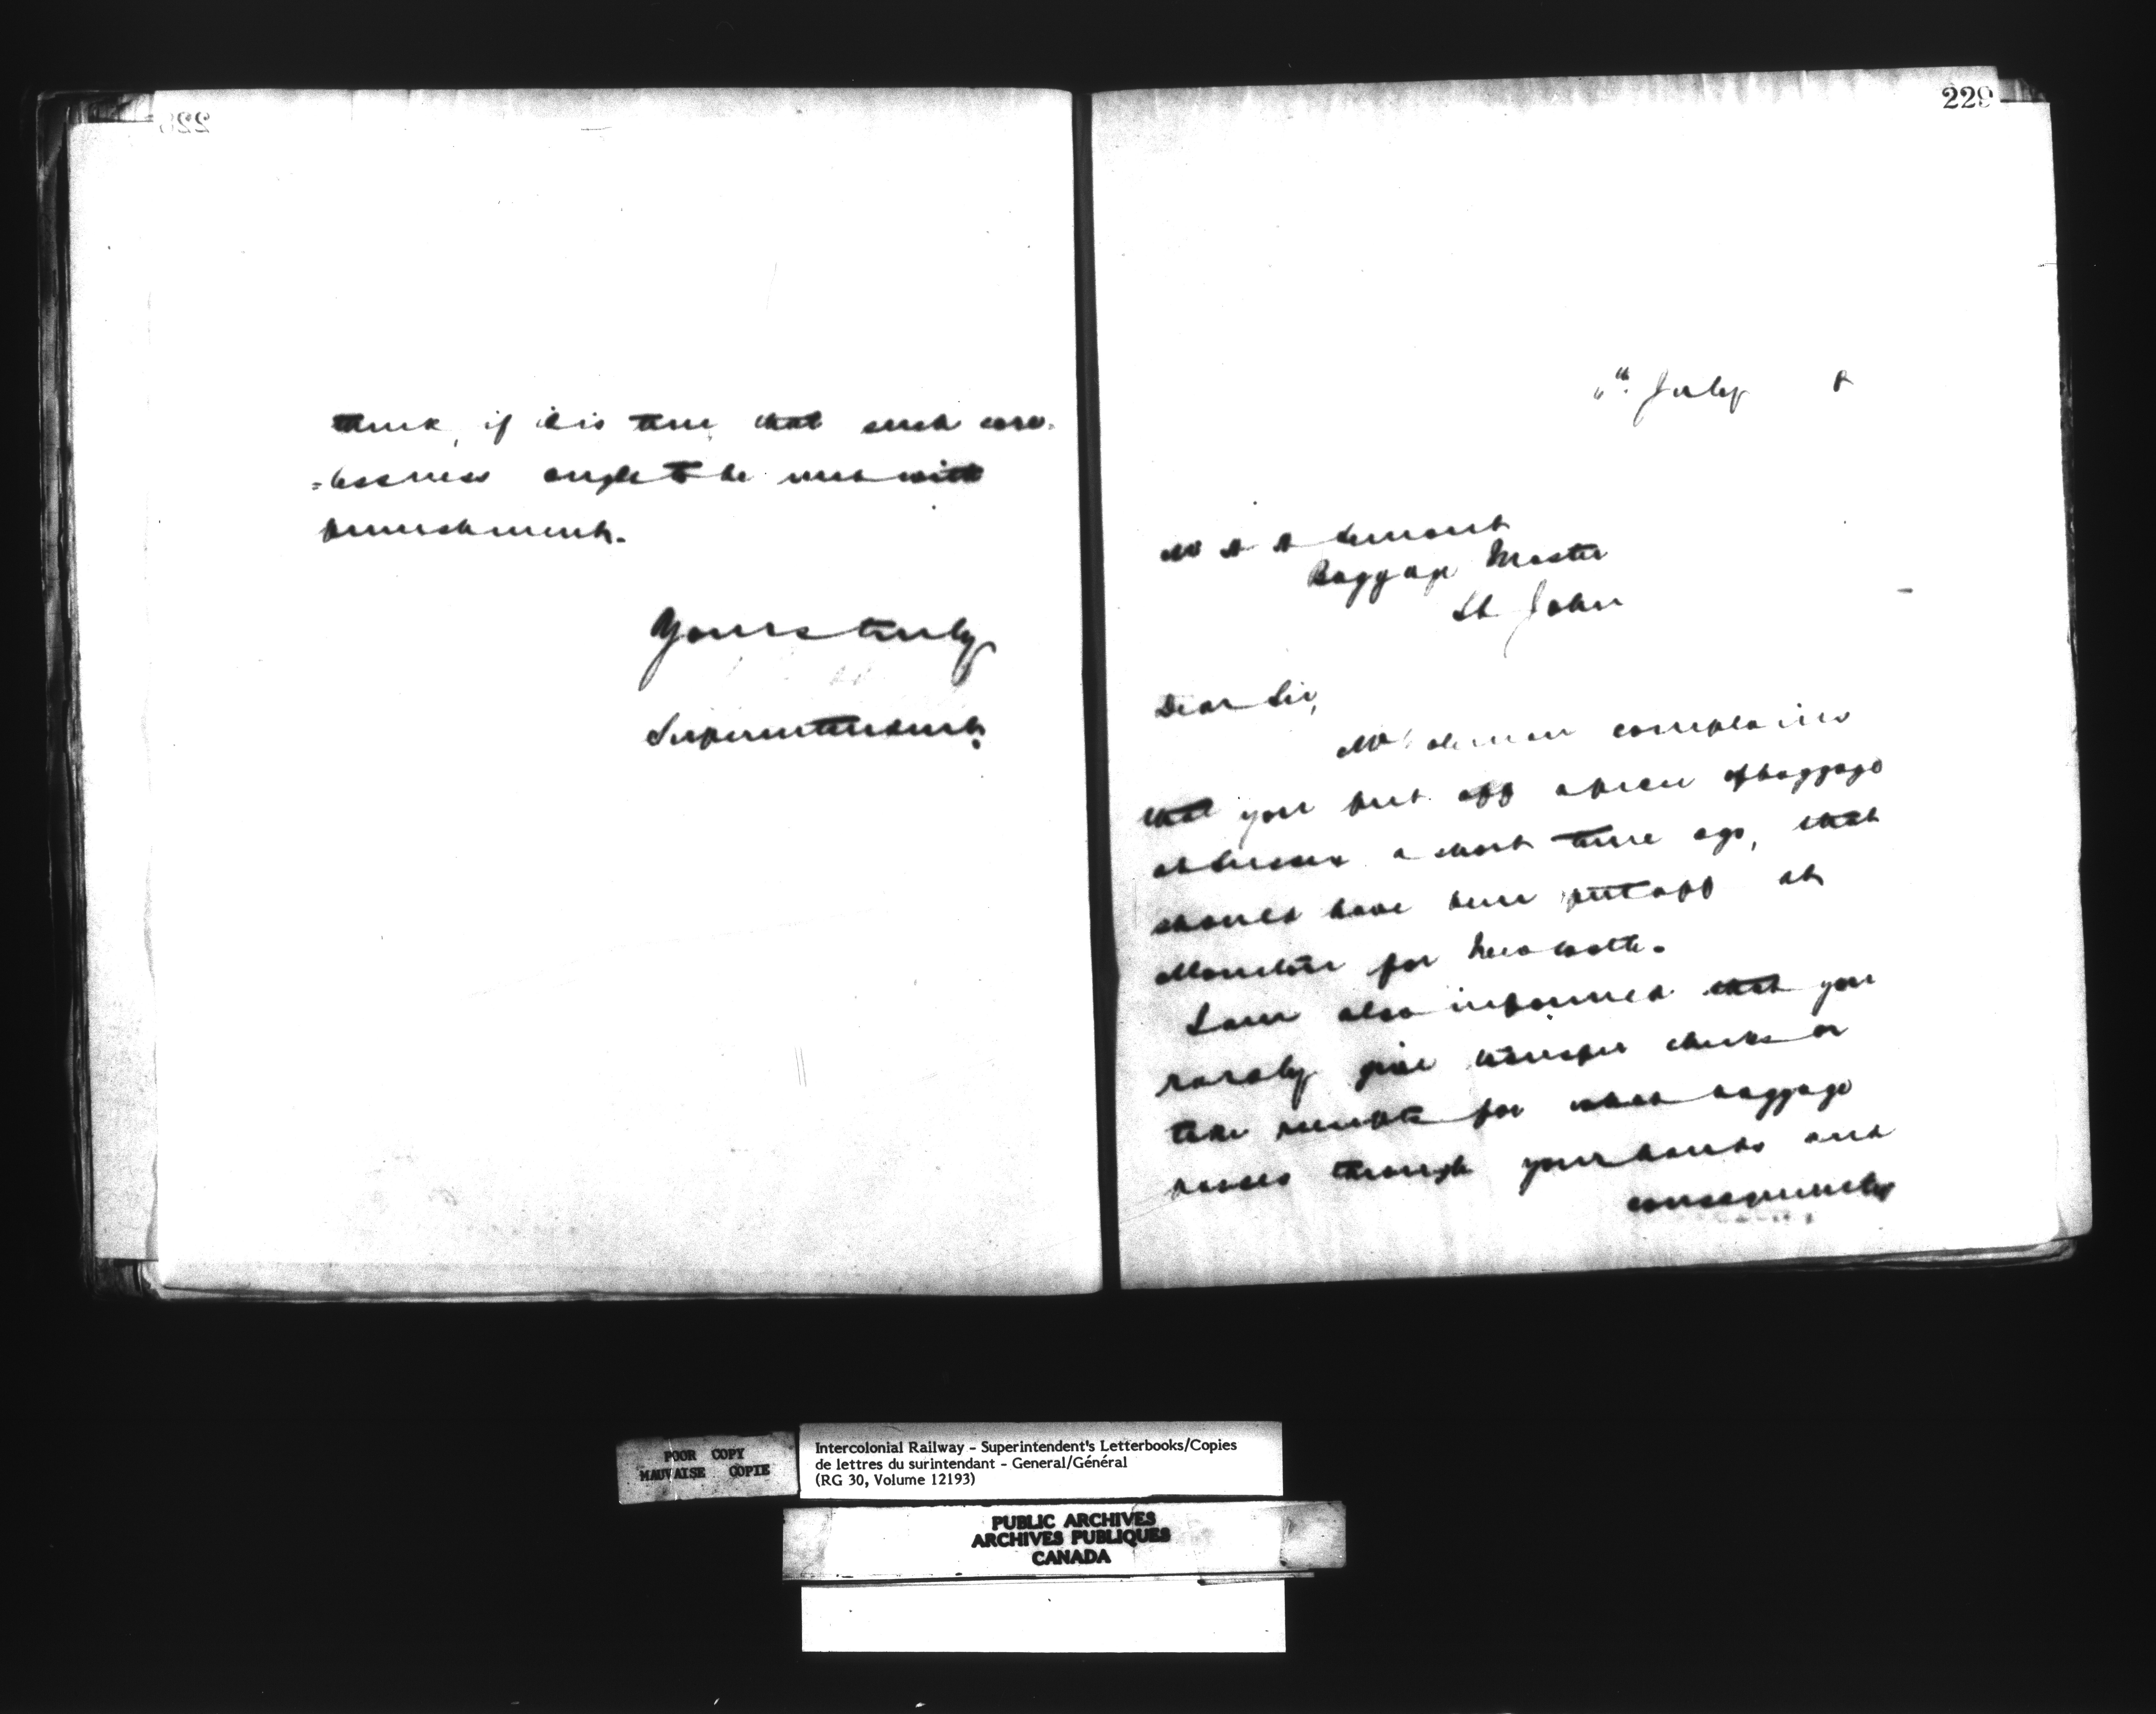 think, if it is true, that such care-
=lessness ought to be met with
punishment.
Yours truly
Superintendent.
229
July
Baggage Master
St John
Dear Sir,
Mr complains
that you put off a piece of baggage
at Sussex a short time ago, that
should have been put off at
Moncton for Newcastle.
I am also informed that you
rarely give transfer checks or
take receipts for what baggage
passes through your hands and
consequently
POOR COPY
MAUVAISE COPIE
Intercolonial Railway - Superintendent's Letterbooks/Copies
de lettres du surintendant - General/Général
(RG 30, Volume 12193)
PUBLIC ARCHIVES
ARCHIVES PUBLIQUES
CANADA